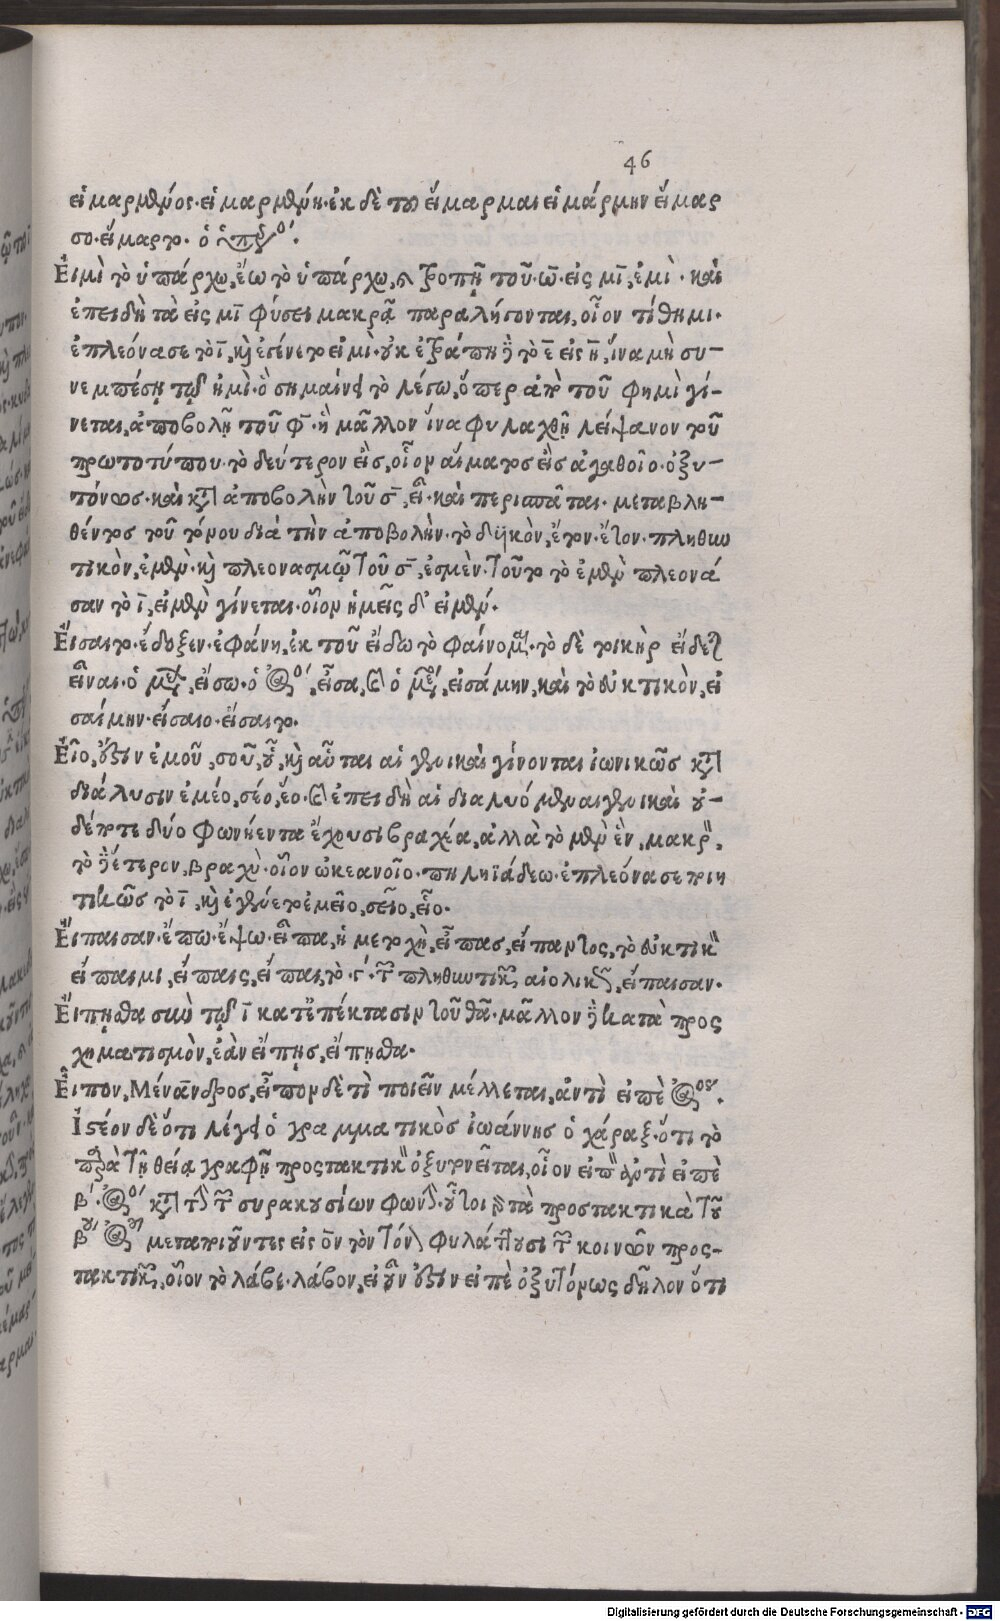 46
εἱμαρμένος· εἱμαρμένη· ἐκ δὲ τοῦ εἵμαρμαι εἱμάρμην εἵμαρ
σο· εἵμαρτο· ὁ ὑπερ
Εἰμὶ τὸ ὑπάρχω, ἔω τὸ ὑπάρχω, καὶ τροπῇ τοῦ ω̄ εἰς μῑ, ἐμὶ· καὶ
ἐπειδὴ τὰ εἰς μῑ φύσει μακρᾷ παραλήγονται, οἷον τίθημι·
ἐπλεόνασε τὸ ῑ, καὶ ἐγένετο εἰμὶ· οὐκ ἐτράπη δὲ τὸ ε̄ εἰς η̄, ἵνα μὴ συ-
νεμπέσῃ τῷ ἠμὶ· ὃ σημαίνει τὸ λέγω, ὅπερ ἀπὸ τοῦ φημὶ γί-
νεται, ἀποβολῇ τοῦ φ̄· ἢ μᾶλλον ἵνα φυλαχθῇ λείψανον τοῦ
πρωτοτύπου· τὸ δεύτερον εἲς, οἷον αἵματος εἲς ἀγαθοῖο· ὀξυ-
τόνως· καὶ κατὰ ἀποβολὴν τοῦ σ̄, εἶ· καὶ περισπᾶται· μεταβλη-
θέντος τοῦ τόνου διὰ τὴν ἀποβολὴν· τὸ δυϊκὸν, ἔτον· ἔϊον· πληθυν
τικὸν, ἐμὲν· καὶ πλεονασμῷ τοῦ σ̄, ἐσμὲν· τοῦτο τὸ ἐμὲν πλεονά
σαν τὸ ῑ, εἰμὲν γίνεται· οἷον ἡμεῖς δ' εἰμέν·
Εἴσαιτο· ἔδοξεν· ἐφάνη, ἐκ τοῦ εἴδω τὸ φαίνομαι· τὸ δὲ τοικὴρ εἴδετ
εἶναι· ὁ μέλλων, εἴσω· ὁ ἀόριστος, εἶσα, καὶ ὁ μέσος, εἰσάμην, καὶ τὸ εὐκτικὸν, εἰ
σαίμην· εἴσαιο· εἴσαιτο·
Εἷο, οὗτιν ἐμοῦ, σοῦ, οὗ, καὶ αὗται αἱ γενικαὶ γίνονται ἰωνικῶς κατὰ
διάλυσιν ἐμέο, σέο, ἕο· καὶ ἐπειδὴ αἱ διαλυόμεναι γενικαὶ οὐ-
δέποτε δύο φωνήεντα ἔχουσι βραχέα, ἀλλὰ τὸ μὲν ἓν, μακρὸν,
τὸ δὲ ἕτερον, βραχὺ· οἷον ὠκεανοῖο· πηληϊάδεω· ἐπλεόνασε ποιη
τικῶς τὸ ῑ, καὶ ἐγένετο ἐμεῖο, σεῖο, εἷο·
Εἴπαισαν· ἔπω· ἔψω· εἶπα, ἡ μετοχὴ, εἶπας, εἴπαντος, τὸ εὐκτικὸν
εἴπαιμι, εἴπαις, εἴπαι, τὸ γ' τῶν πληθυντικῶν αἰολικῶς, εἴπαισαν·
Εἴπῃσθα σὺν τῷ ῑ κατ' ἐπέκτασιν τοῦ θᾶ· μᾶλλον δὲ κατὰ προς
χηματισμὸν, ἐὰν εἴπῃς, εἴπῃσθα·
Εἶπον, Μένανδρος, εἶπον δὲ τὶ ποιεῖν μέλλεται, ἀντὶ εἰπὲ ἀορίστου·
Ἰστέον δὲ ὅτι λέγει ὁ γραμματικὸς ἰωάννης ὁ χάραξ· ὅτι τὸ
παρὰ τῇ θείᾳ γραφῇ προςτακτικὸν ὀξυτονεῖται, οἷον εἰπὸν ἀντὶ εἰπὲ
β' ἀόριστος κατὰ τὴν τῶν συρακουσίων φωνὴν· οὗτοι γὰρ τὰ προστακτικὰ τοῦ
βου ἀορίστου μεταποιοῦντες εἰς ὃν τὸν τόνον φυλάττουσι τῶν κοινῶν προς-
τακτικῶν, οἷον τὸ λάβε· λάβον, εἰ οὖν οὗτιν εἰπὲ ὀξυτόνως δῆλον ὅτι
Digitalisierung gefördert durch die Deutsche Forschungsgemeinschaft - DFG